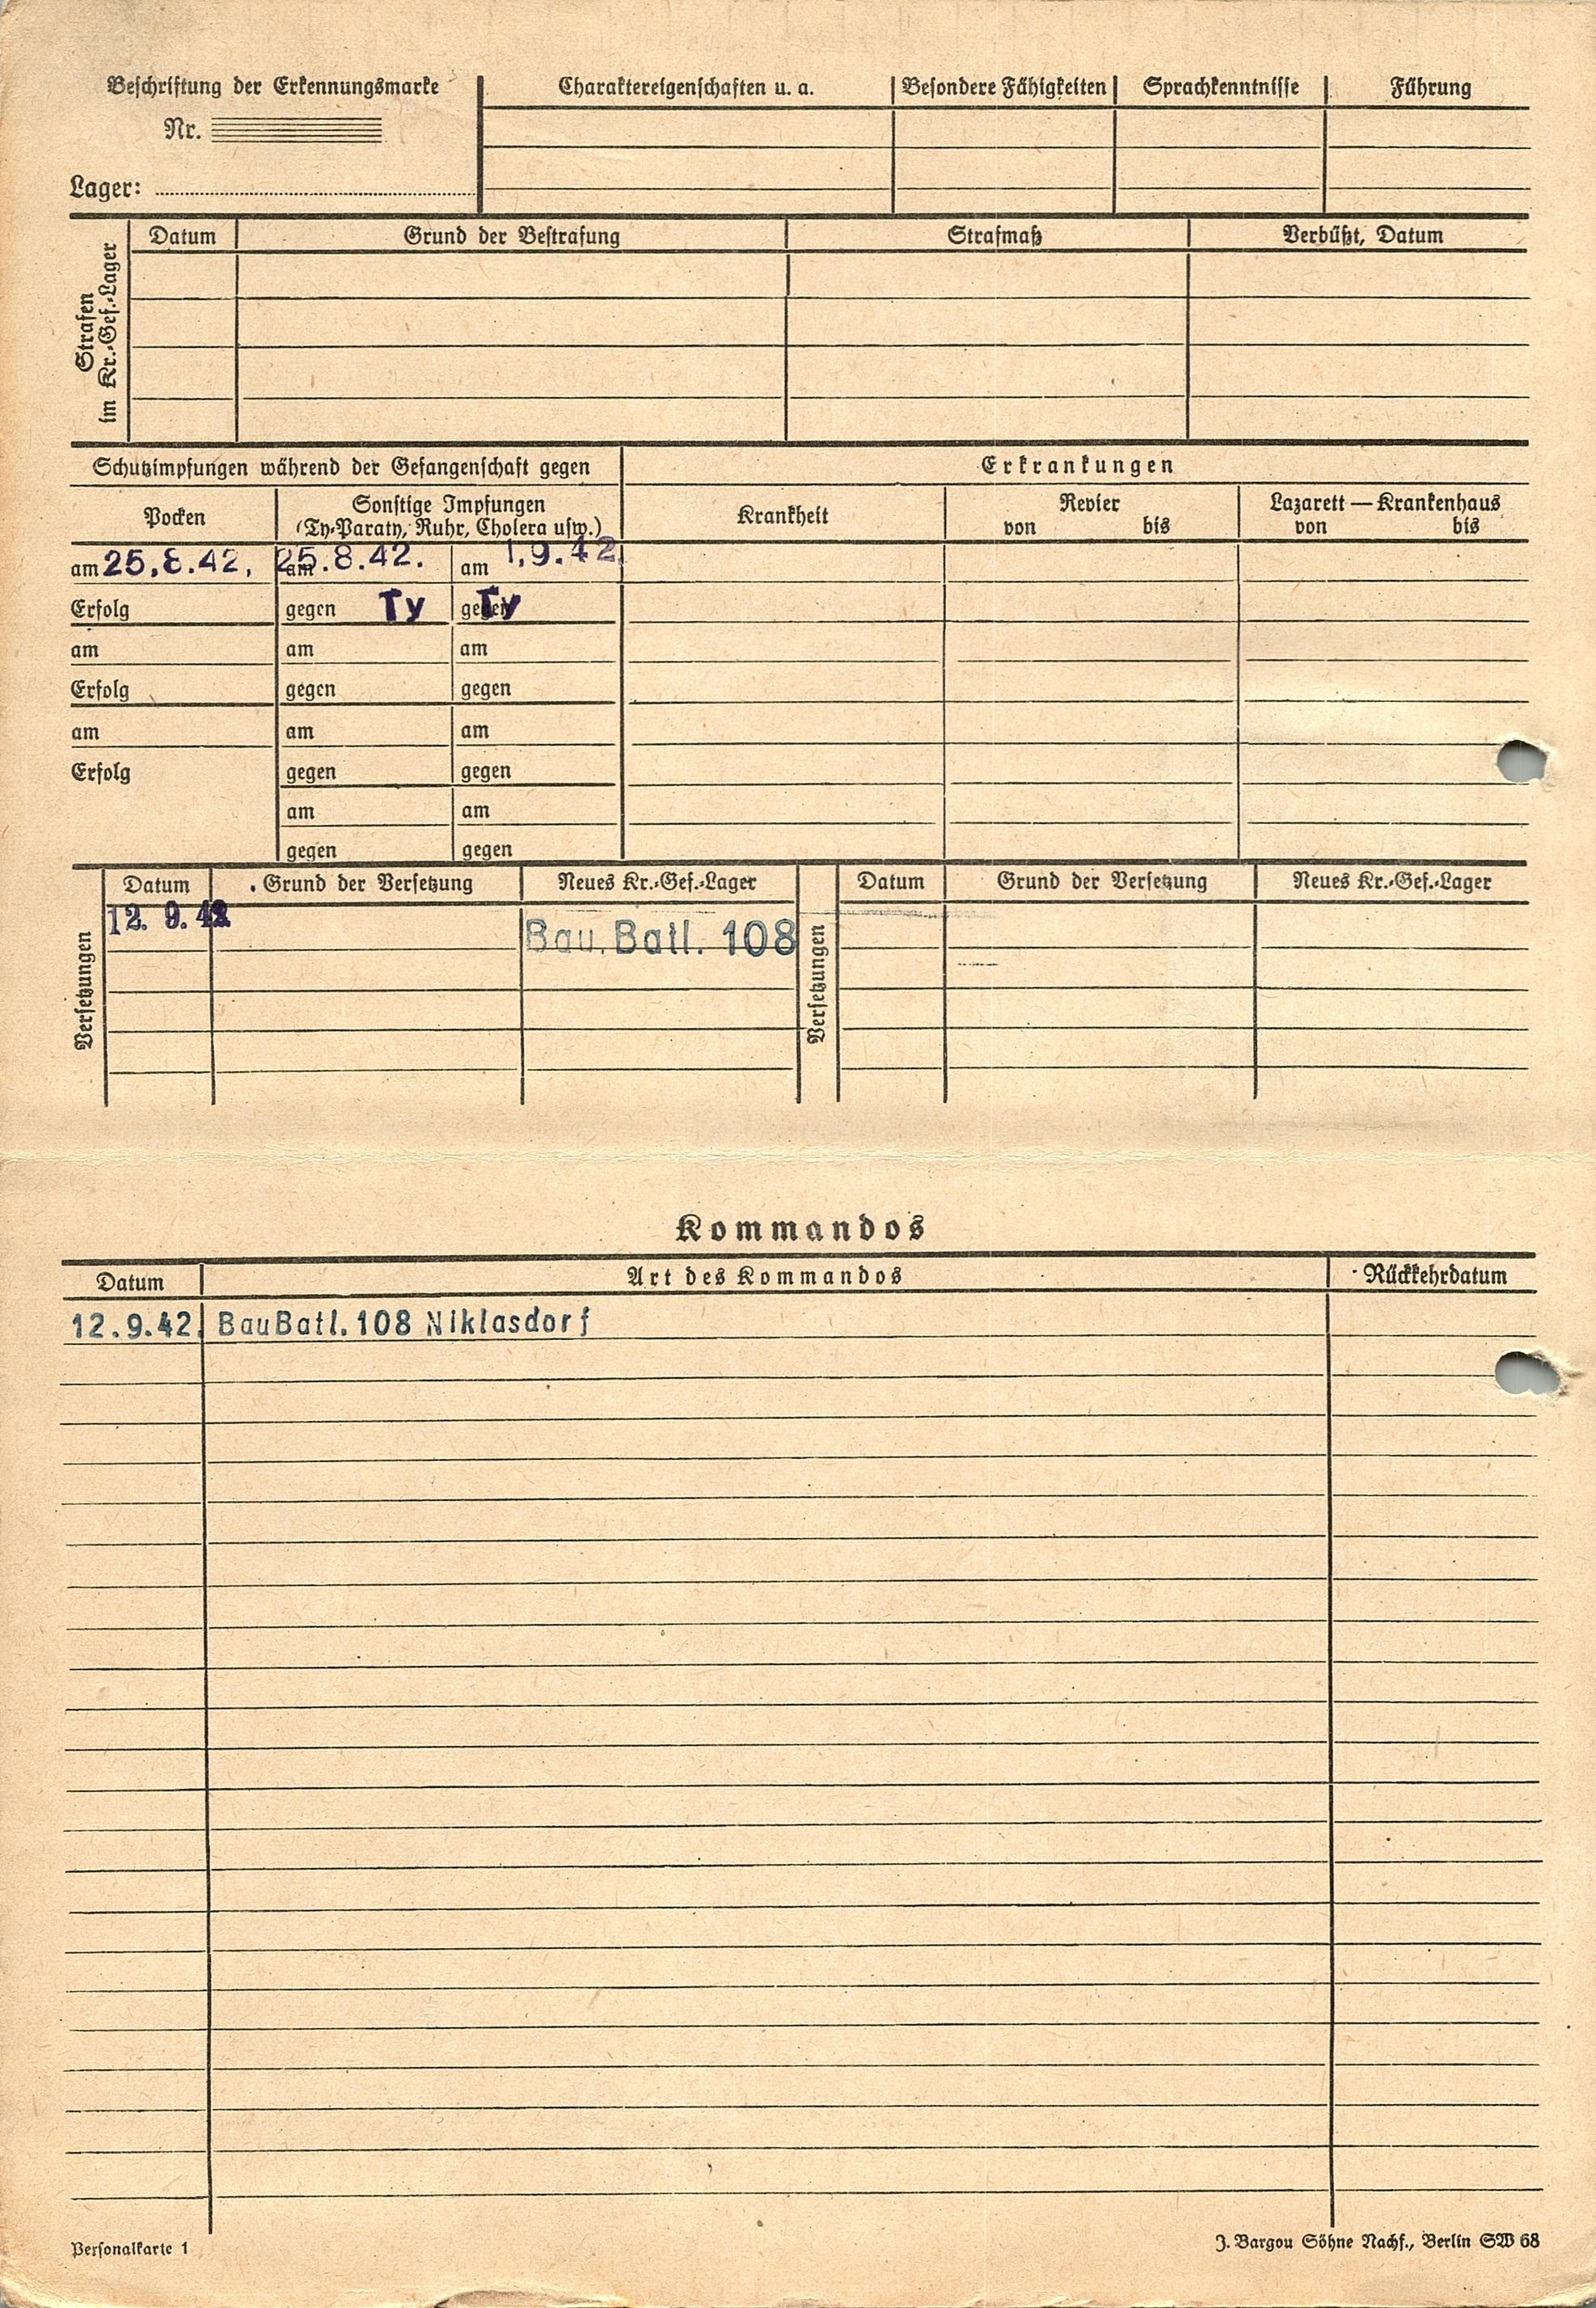 Beschriftung der Erkennungsmarke
Nr.
Lager:
Charaktereigenschaften u. a.
Besondere Fähigkeiten
Sprachkenntnisse
Führung
Strafen
im Kr.-Gef.-Lager
Datum
Grund der Bestrafung
Strafmaß
Verbüßt, Datum
Schutzimpfungen während der Gefangenschaft gegen
Erkrankungen
Pocken
Sonstige Impfungen
(Ty-Paraty, Ruhr, Cholera usw.)
Krankheit
Revier
von bis
Lazarett — Krankenhaus
von bis
am 25.8.42. am 25.8.42. am 1.9.42.
Erfolg gegen Ty gegen Ty
am am am
Erfolg gegen gegen
am am am
Erfolg gegen gegen
am am
gegen gegen
Versetzungen
Datum Grund der Versetzung Neues Kr.-Gef.-Lager
12. 9. 42 Bau.Batl. 108
Versetzungen
Datum Grund der Versetzung Neues Kr.-Gef.-Lager
Kommandos
Datum Art des Kommandos Rückkehrdatum
12.9.42. BauBatl. 108 Niklasdorf
Personalkarte 1
J. Bargou Söhne Nachf., Berlin SW 68